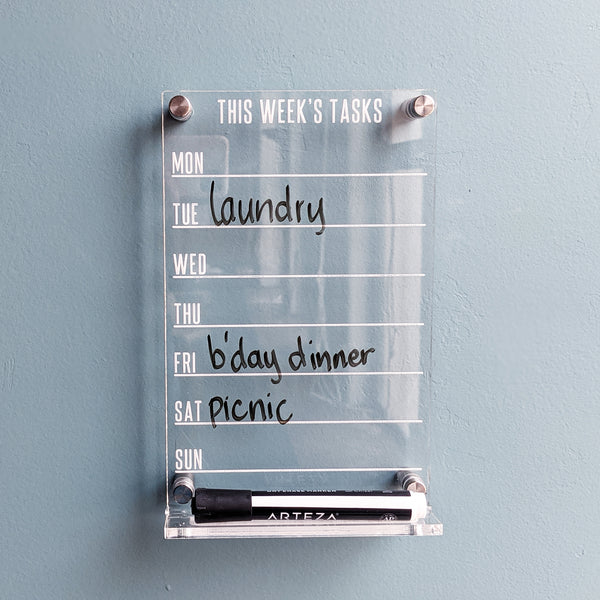 THIS WEEK'S TASKS
MON
TUE laundry
WED
THU
FRI b'day dinner
SAT picnic
SUN
DRY ERASE MARKER
ARTEZA